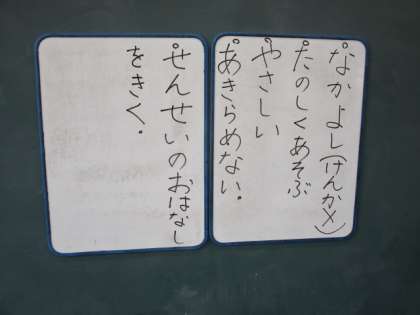 °なかよし(けんか×)
°たのしくあそぶ
°やさしい
°あきらめない。
°せんせいのおはなし
をきく。